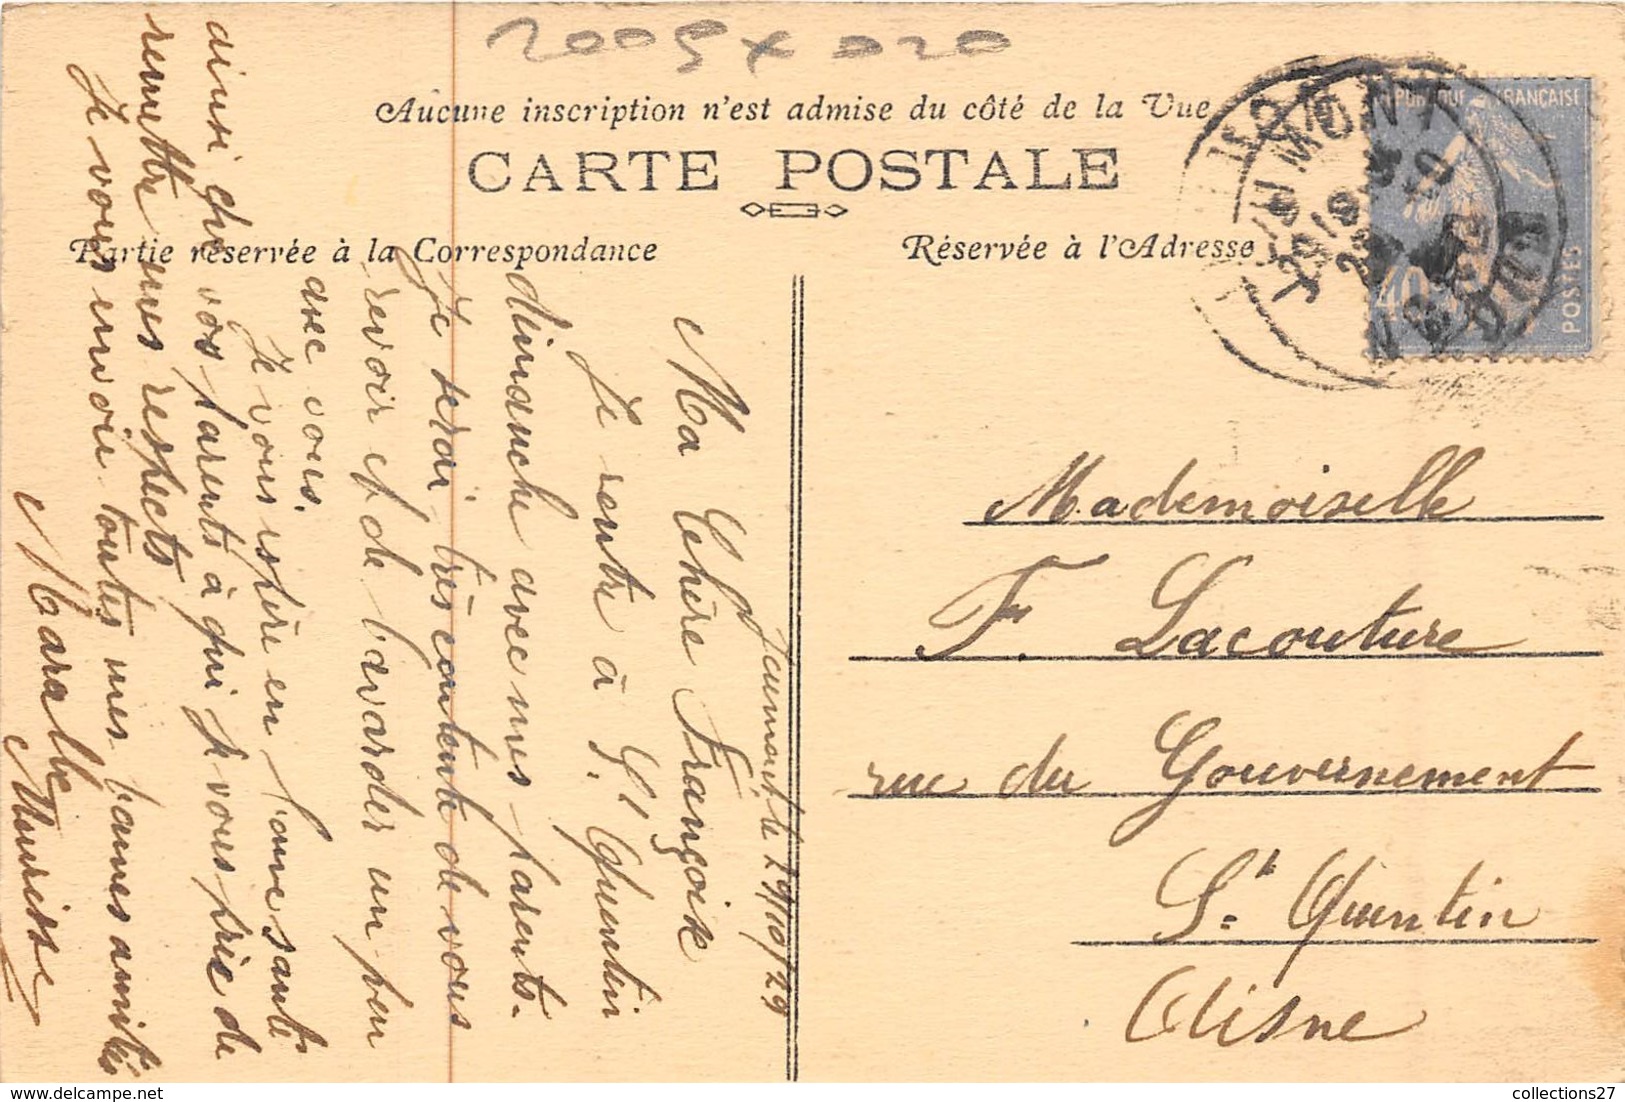 2009 x 020
Aucune inscription n'est admise du côté de la Vue
CARTE POSTALE
Partie réservée à la Correspondance
Réservée à l'Adresse
Jeumont, le 29/10/29
Ma Chère Françoise
Je rentre à St Quentin
dimanche avec mes parents.
Je serai très contente de vous
revoir et de bavarder un peu
avec vous.
Je vous espère en bonne santé
ainsi que vos parents à qui je vous prie de
remettre mes respects
Je vous envoie toutes mes bonnes amitiés
JEUMONT
NORD
RÉPUBLIQUE FRANÇAISE
40
POSTES
Mademoiselle
F. Lacouture
rue du Gouvernement
St Quentin
Aisne
www.delcampe.net
collections27